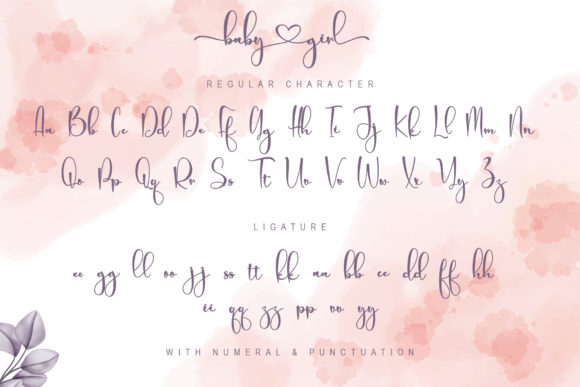 baby girl
REGULAR CHARACTER
Aa Bb Cc Dd De Ff Gg Hh Ii Jj Kk Ll Mm Nn
Oo Pp Qq Rr Ss Tt Uu Vv Ww Xx Yy Zz
LIGATURE
ee gg ll oo jj ss tt kk aa bb cc dd ff hh
ii qq zz pp vv yy
WITH NUMERAL & PUNCTUATION